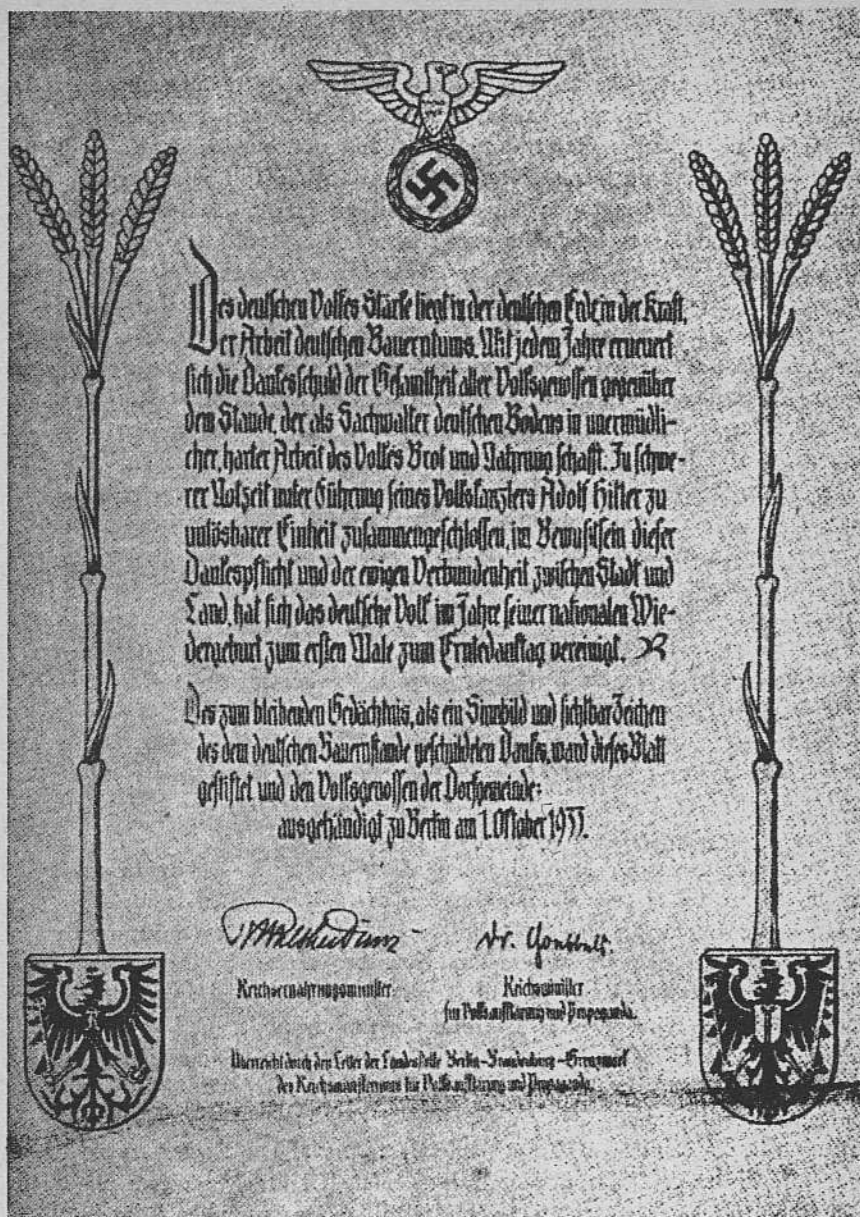 Des deutschen Volkes Stärke liegt in der deutschen Erde, in der Kraft,
der Arbeit deutschen Bauerntums. Mit jedem Jahre erneuert
sich die Dankesschuld der Gesamtheit aller Volksgenossen gegenüber
dem Stande, der als Sachwalter deutschen Bodens in unermüdli-
cher, harter Arbeit des Volkes Brot und Nahrung schafft. In schwe-
rer Notzeit unter Führung seines Volkskanzlers Adolf Hitler zu
unlösbarer Einheit zusammengeschlossen, im Bewußtsein dieser
Dankespflicht und der ewigen Verbundenheit zwischen Stadt und
Land, hat sich das deutsche Volk im Jahre seiner nationalen Wie-
dergeburt zum ersten Male zum Erntedanktag vereinigt.
Des zum bleibenden Gedächtnis, als ein Sinnbild und sichtbar Zeichen
des dem deutschen Bauernstande geschuldeten Dankes, ward dieses Blatt
gestiftet und den Volksgenossen der Dorfgemeinde:
ausgehändigt zu Berlin am 1. Oktober 1933.
Dr. Goebbels.
Reichsernährungsminister. Reichsminister
für Volksaufklärung und Propaganda.
Überreicht durch den Leiter der Landesstelle Berlin-Brandenburg-Grenzmark
des Reichsministeriums für Volksaufklärung und Propaganda.